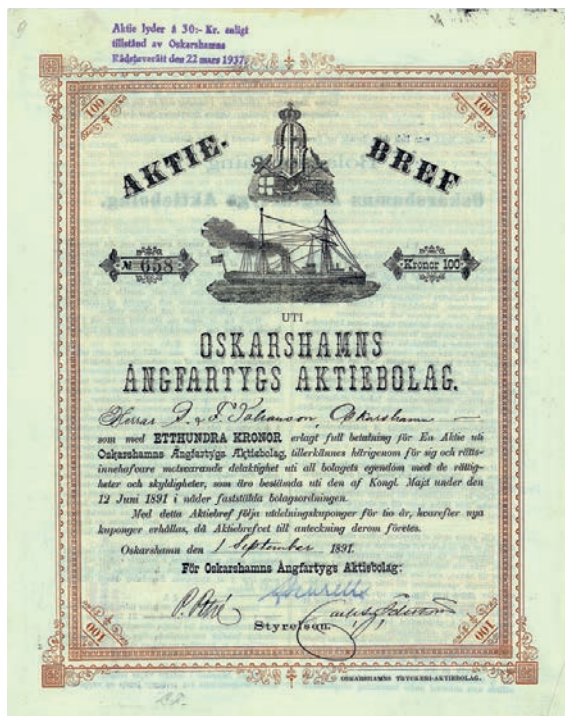 Aktie lyder à 30:- Kr. enligt
tillstånd av Oskarshamns
Rådhusrätt den 22 mars 1937.
100
100
AKTIE-
BREF
№ 658
Kronor 100
UTI
OSKARSHAMNS
ÅNGFARTYGS AKTIEBOLAG.
Herrar J. & F. Johanson, Oskarshamn
som med ETTHUNDRA KRONOR erlagt full betalning för En Aktie uti
Oskarshamns Ångfartygs Aktiebolag, tillerkännes härigenom för sig och rätts-
innehafvare motsvarande delaktighet uti all bolagets egendom med de rättig-
heter och skyldigheter, som äro bestämda uti den af Kongl. Majt under den
12 Juni 1891 i nåder fastställda bolagsordningen.
Med detta Aktiebref följa utdelningskuponger för tio år, hvarefter nya
kuponger erhållas, då Aktiebrefvet till anteckning derom företes.
Oskarshamn den 1 September 1891.
För Oskarshamns Ångfartygs Aktiebolag:
Styrelsen.
100
100
OSKARSHAMNS TRYCKERI-AKTIEBOLAG.